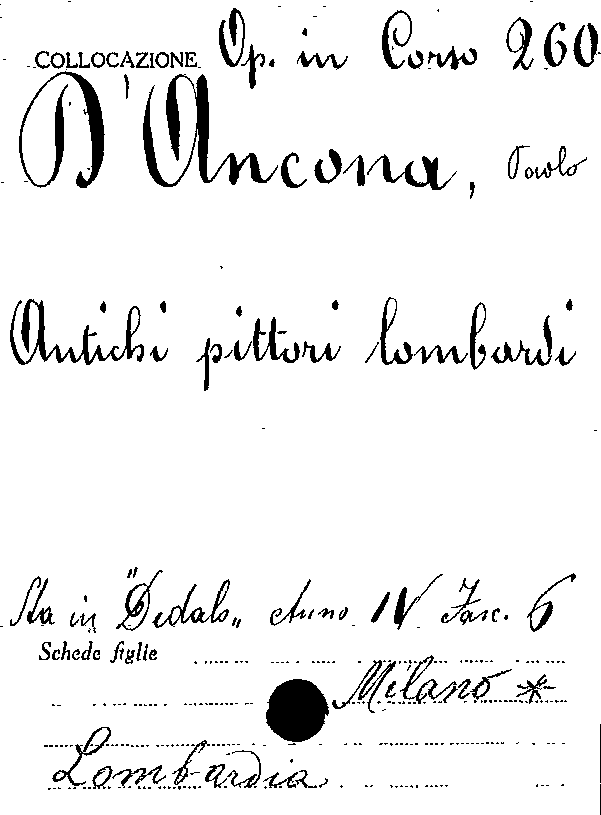 COLLOCAZIONE Op. in Corso 260
D'Ancona, Paolo
Antichi pittori lombardi
Sta in "Dedalo" Anno IV Fasc. 6
Schede figlie
Milano *
Lombardia